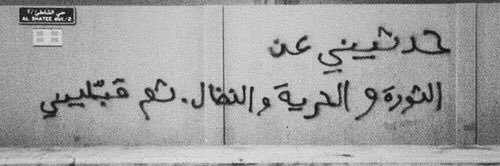 حي الشاطئ/٢
AL SHATEE dist./2
حدثيني عن
الثورة و الحرية و النضال. ثم قبّليني